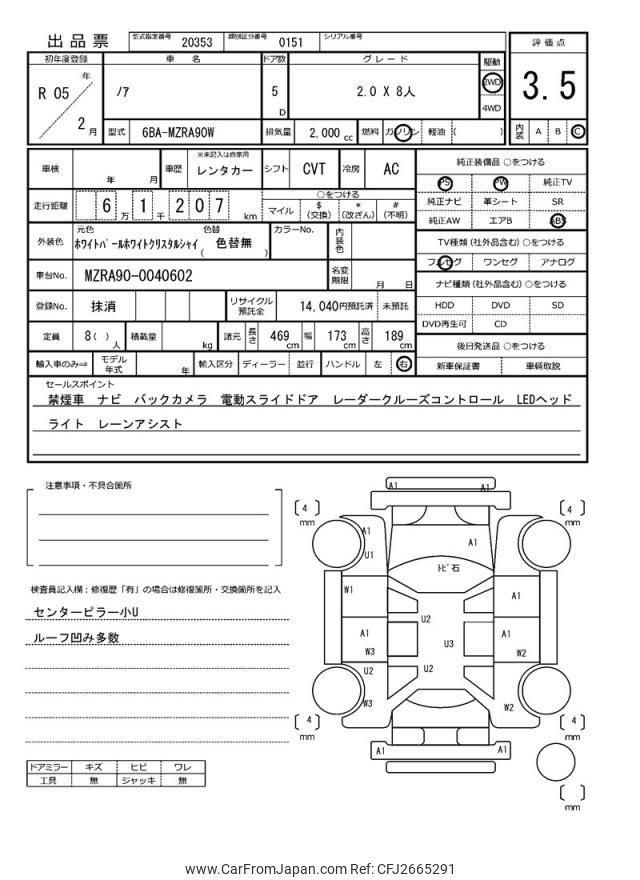 出品票 型式指定番号 20353 類別区分番号 0151 シリアル番号
評価点
3.5
内装 A B C
初年度登録 車名 ドア数 グレード 駆動
R 05 年 2 月 ノア 5 D 2.0 X 8人 2WD 4WD
型式 6BA-MZRA90W 排気量 2,000 cc 燃料 ガソリン 軽油 ( )
車検 年 月 車歴 ※未記入は自家用 レンタカー シフト CVT 冷房 AC
走行距離 6 万 1 千 2 0 7 km ○をつける
マイル $(交換) *(改ざん) #(不明)
外装色 元色 ホワイトパールホワイトクリスタルシャイ 色替 ( 色替無 ) カラーNo. 内装色
車台No. MZRA90-0040602 名変期限 月 日
登録No. 抹消 リサイクル預託金 14,040円預託済 未預託
定員 8( )人 積載量 kg 諸元 長さ 469 cm 幅 173 cm 高さ 189 cm
輸入車のみ⇒ モデル年式 年 輸入区分 ディーラー 並行 ハンドル 左 右
純正装備品 ○をつける
PS PW 純正TV
純正ナビ 革シート SR
純正AW エアB ABS
TV種類(社外品含む) ○をつける
フルセグ ワンセグ アナログ
ナビ種類(社外品含む) ○をつける
HDD DVD SD
DVD再生可 CD
後日発送品 ○をつける
新車保証書 車輌取説
セールスポイント
禁煙車 ナビ バックカメラ 電動スライドドア レーダークルーズコントロール LEDヘッド
ライト レーンアシスト
注意事項・不具合箇所
検査員記入欄:修復歴「有」の場合は修復箇所・交換箇所を記入
センターピラー小U
ルーフ凹み多数
ドアミラー キズ ヒビ ワレ
工具 無 ジャッキ 無
A1 A1
4 mm
4 mm
A1 A1
U1 トビ石
W1 A1
U2
A1 A1
U3
W3 W2
U2 U2
W3 W2
4 mm
4 mm
A1 A1
mm
www.CarFromJapan.com Ref: CFJ2665291